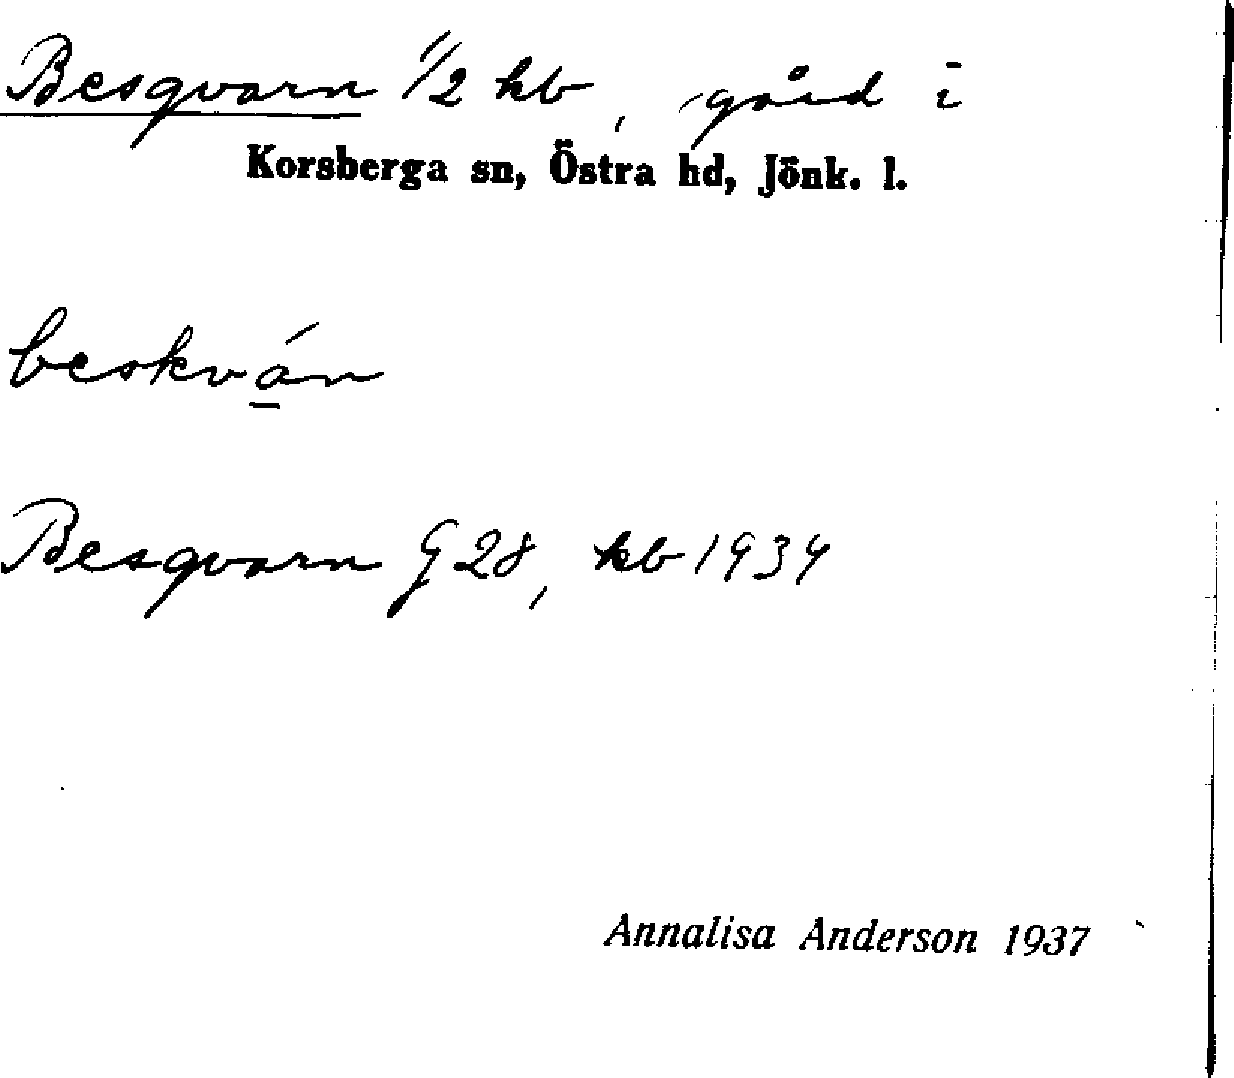 Besqvarn 1/2 kb, gård i
Korsberga sn, Östra hd, Jönk. l.
beskvá̱n
Besqvarn G 28, kb 1934
Annalisa Anderson 1937